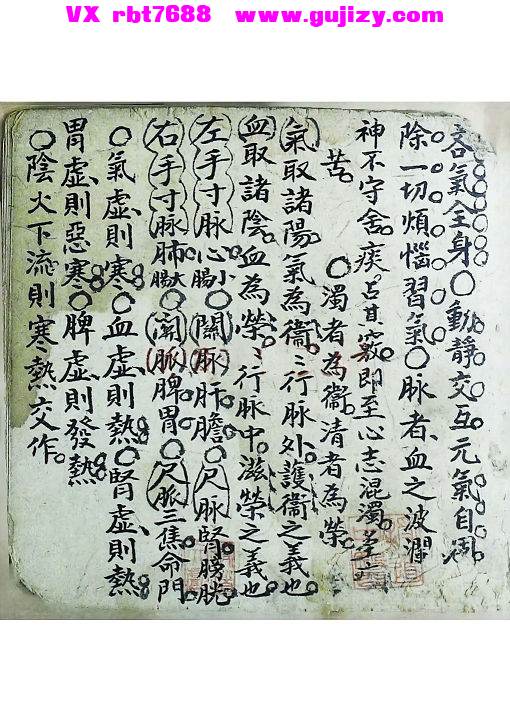 VX rbt7688 www.gujizy.com
吝氣全身〇動靜交互元氣自調
除一切煩惱習氣〇脈者血之波瀾
神不守舍痰占其竅即至心志混濁
苦〇濁者為衛清者為榮
氣取諸陽氣為衛〻行脈外護衛之義也
血取諸陰血為榮〻行脈中滋榮之義也
左手寸脈心小腸〇關脈肝膽〇尺脈腎膀胱
右手寸脈肺大腸〇關脈脾胃〇尺脈三焦命門
〇氣虛則寒〇血虛則熱〇腎虛則熱
胃虛則惡寒〇脾虛則發熱
〇陰火下流則寒熱交作